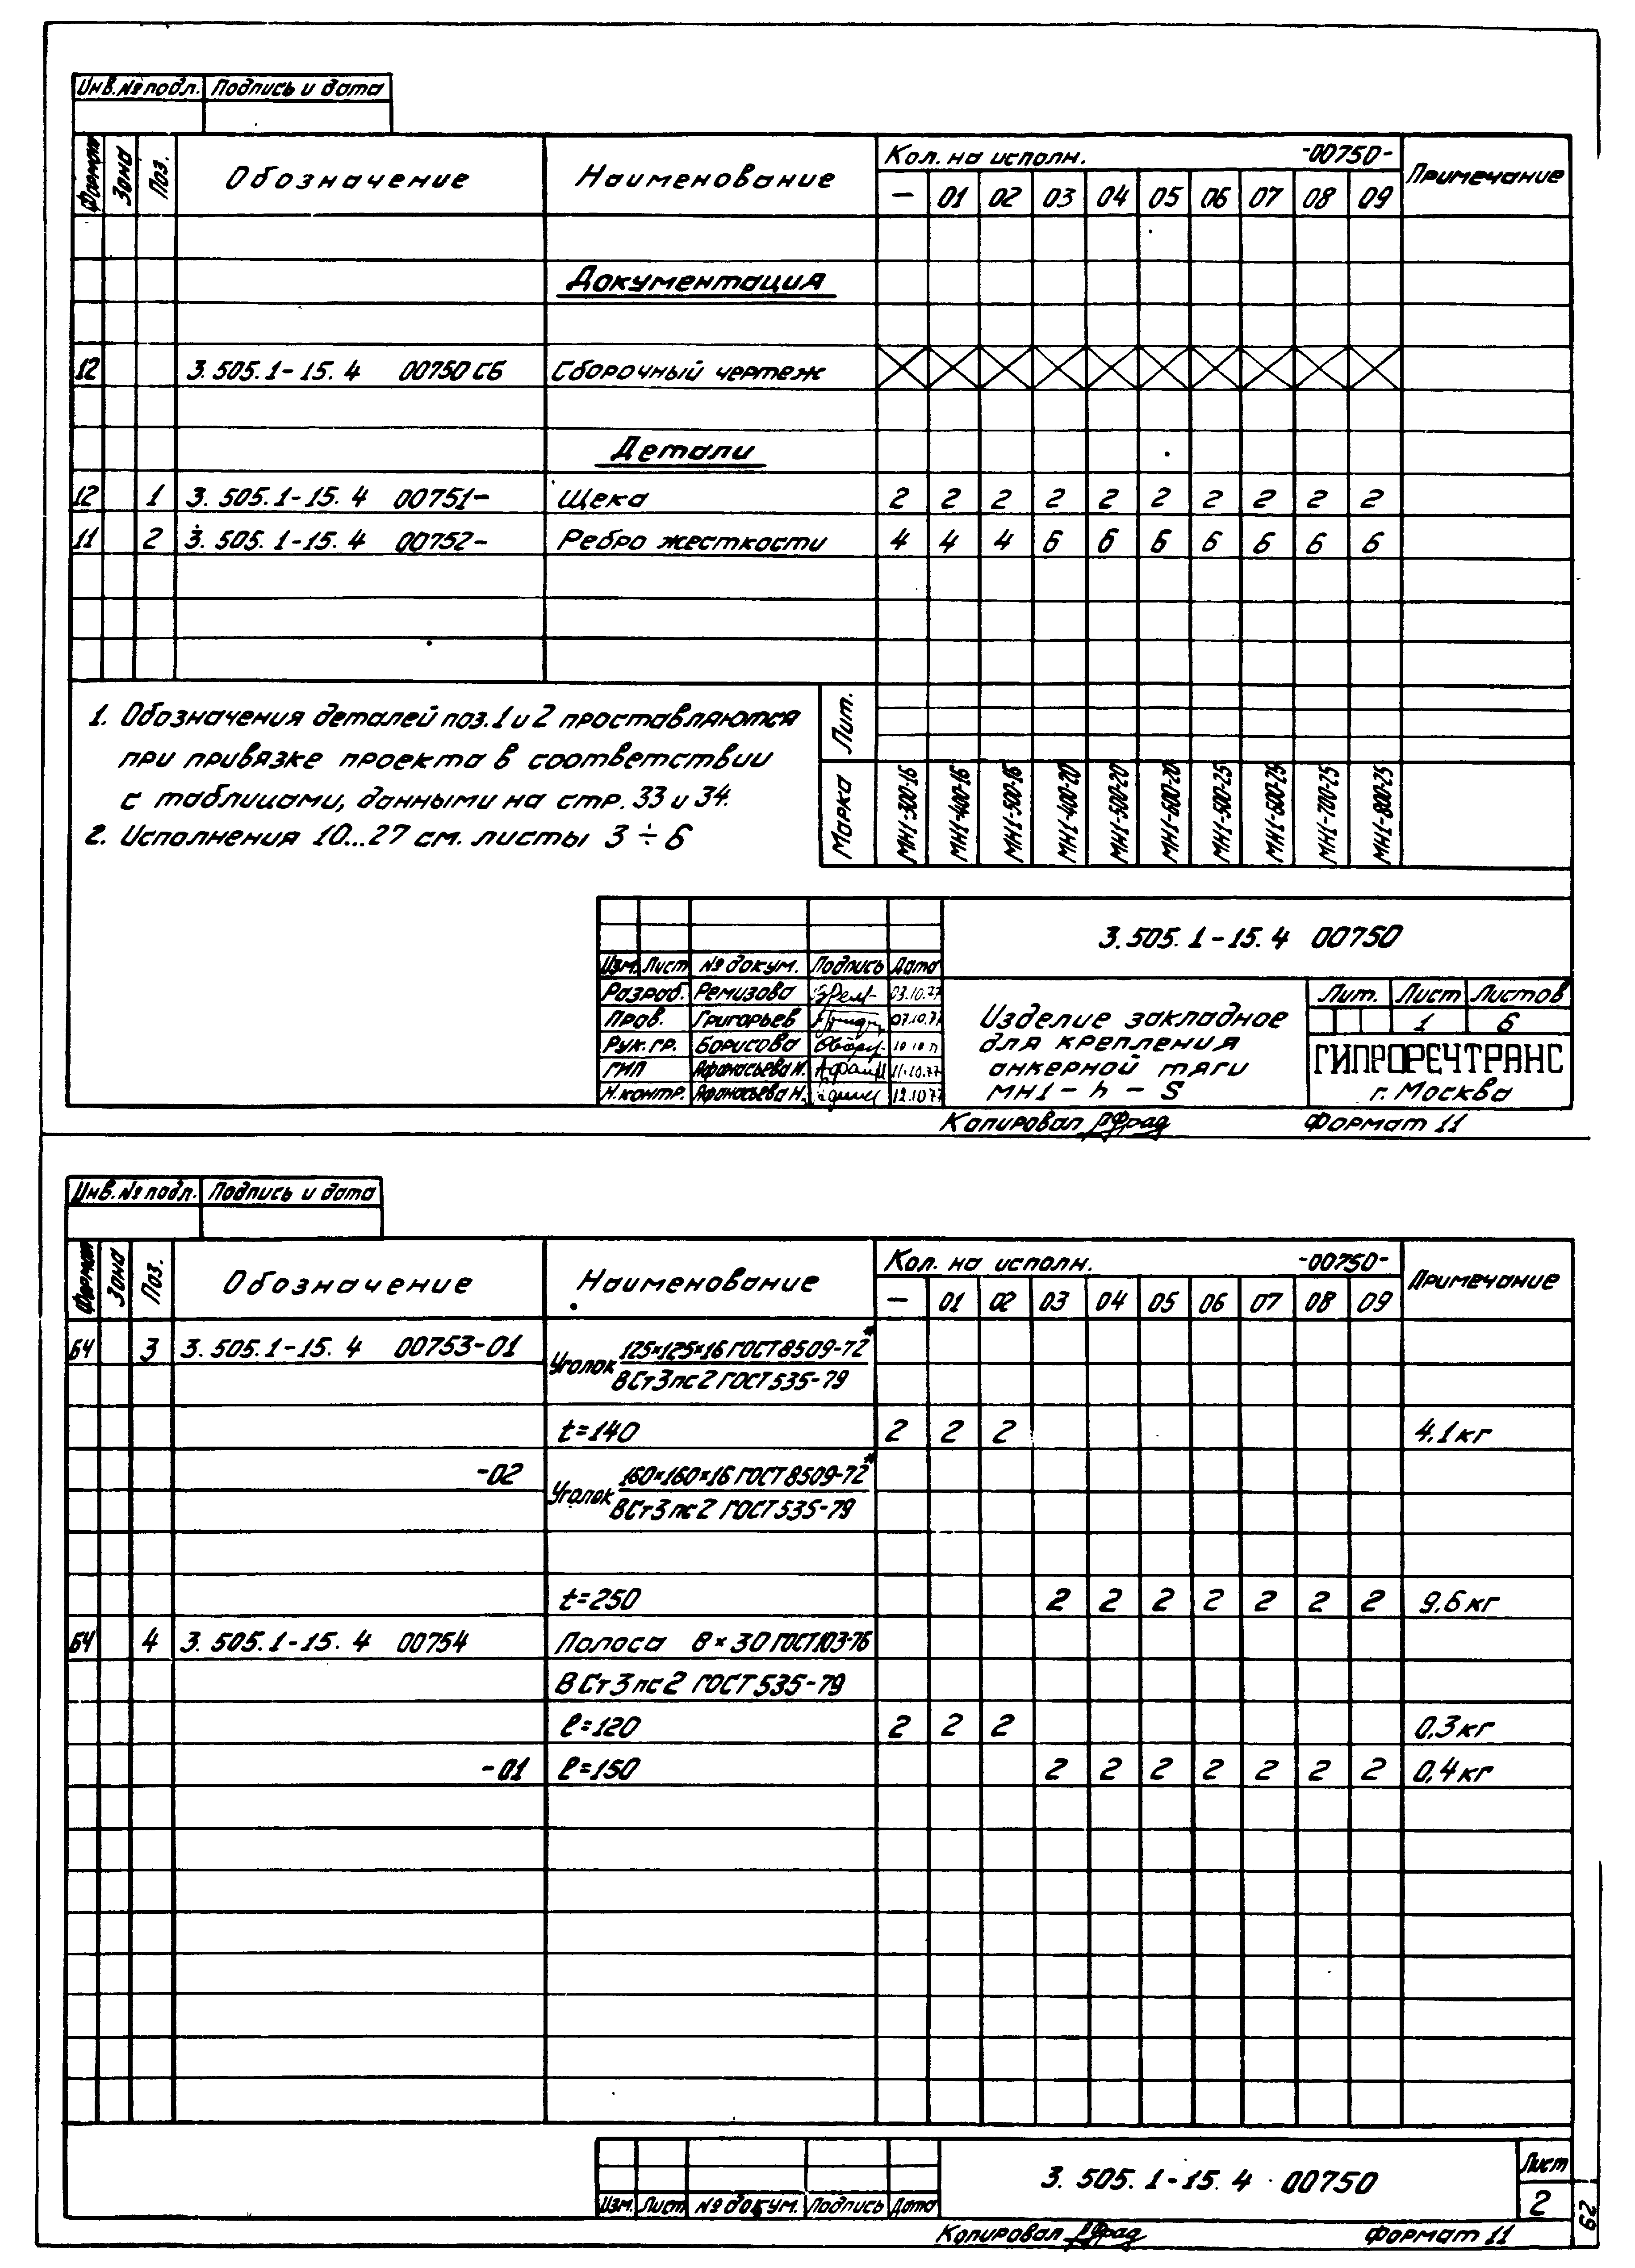 Инв.№ подл. Подпись и дата
Формат Зона Поз. Обозначение Наименование Кол. на исполн. -00750- Примечание
— 01 02 03 04 05 06 07 08 09
Документация
12 3.505.1-15.4 00750 СБ Сборочный чертеж
Детали
12 1 3.505.1-15.4 00751- Щека 2 2 2 2 2 2 2 2 2 2
11 2 3.505.1-15.4 00752- Ребро жесткости 4 4 4 6 6 6 6 6 6 6
1. Обозначения деталей поз.1 и 2 проставляются
при привязке проекта в соответствии
с таблицами, данными на стр. 33 и 34.
2. Исполнения 10...27 см. листы 3 ÷ 6
Лит.
Марка МН1-300-16 МН1-400-16 МН1-500-16 МН1-400-20 МН1-500-20 МН1-600-20 МН1-500-25 МН1-600-25 МН1-700-25 МН1-800-25
3.505.1-15.4 00750
Изм. Лист № докум. Подпись Дата
Разраб. Ремизова 03.10.77
Пров. Григорьев 07.10.77
Рук.гр. Борисова 10 10 77
ГИП Афанасьева Н. 11.10.77
Н.контр. Афанасьева Н. 12.10 77
Изделие закладное
для крепления
анкерной тяги
МН1 - h - S
Лит. Лист Листов
1 6
ГИПРОРЕЧТРАНС
г. Москва
Копировал Формат 11
Инв.№ подл. Подпись и дата
Формат Зона Поз. Обозначение Наименование Кол. на исполн. -00750- Примечание
— 01 02 03 04 05 06 07 08 09
БЧ 3 3.505.1-15.4 00753-01 Уголок 125×125×16 ГОСТ 8509-72*
ВСт3пс2 ГОСТ 535-79
t=140 2 2 2 4,1 кг
-02 Уголок 160×160×16 ГОСТ 8509-72*
ВСт3пс2 ГОСТ 535-79
t=250 2 2 2 2 2 2 2 9.6 кг
БЧ 4 3.505.1-15.4 00754 Полоса 8×30 ГОСТ 103-76
ВСт3пс2 ГОСТ 535-79
ℓ=120 2 2 2 0,3 кг
-01 ℓ=150 2 2 2 2 2 2 2 0,4 кг
3.505.1-15.4 00750
Лист
2
Изм. Лист № докум. Подпись Дата
Копировал Формат 11
29